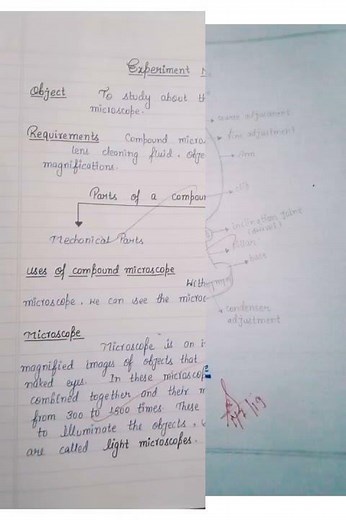 Experiment
Object To study about th
microscope.
Requirements Compound micros
lens cleaning fluid. Obje
magnifications.
Parts of a compour
Mechanical Parts
uses of compound microscope
With
microscope. we can see the microc
Microscope
Microscope is an i
magnified images of objects that
naked eyes. In these microscop
combined together and their m
from 300 to 1500 times These
to illuminate the objects,
are called light microscopes.
adjustment
fine adjustment
arm
inclination joint
condenser
adjustment